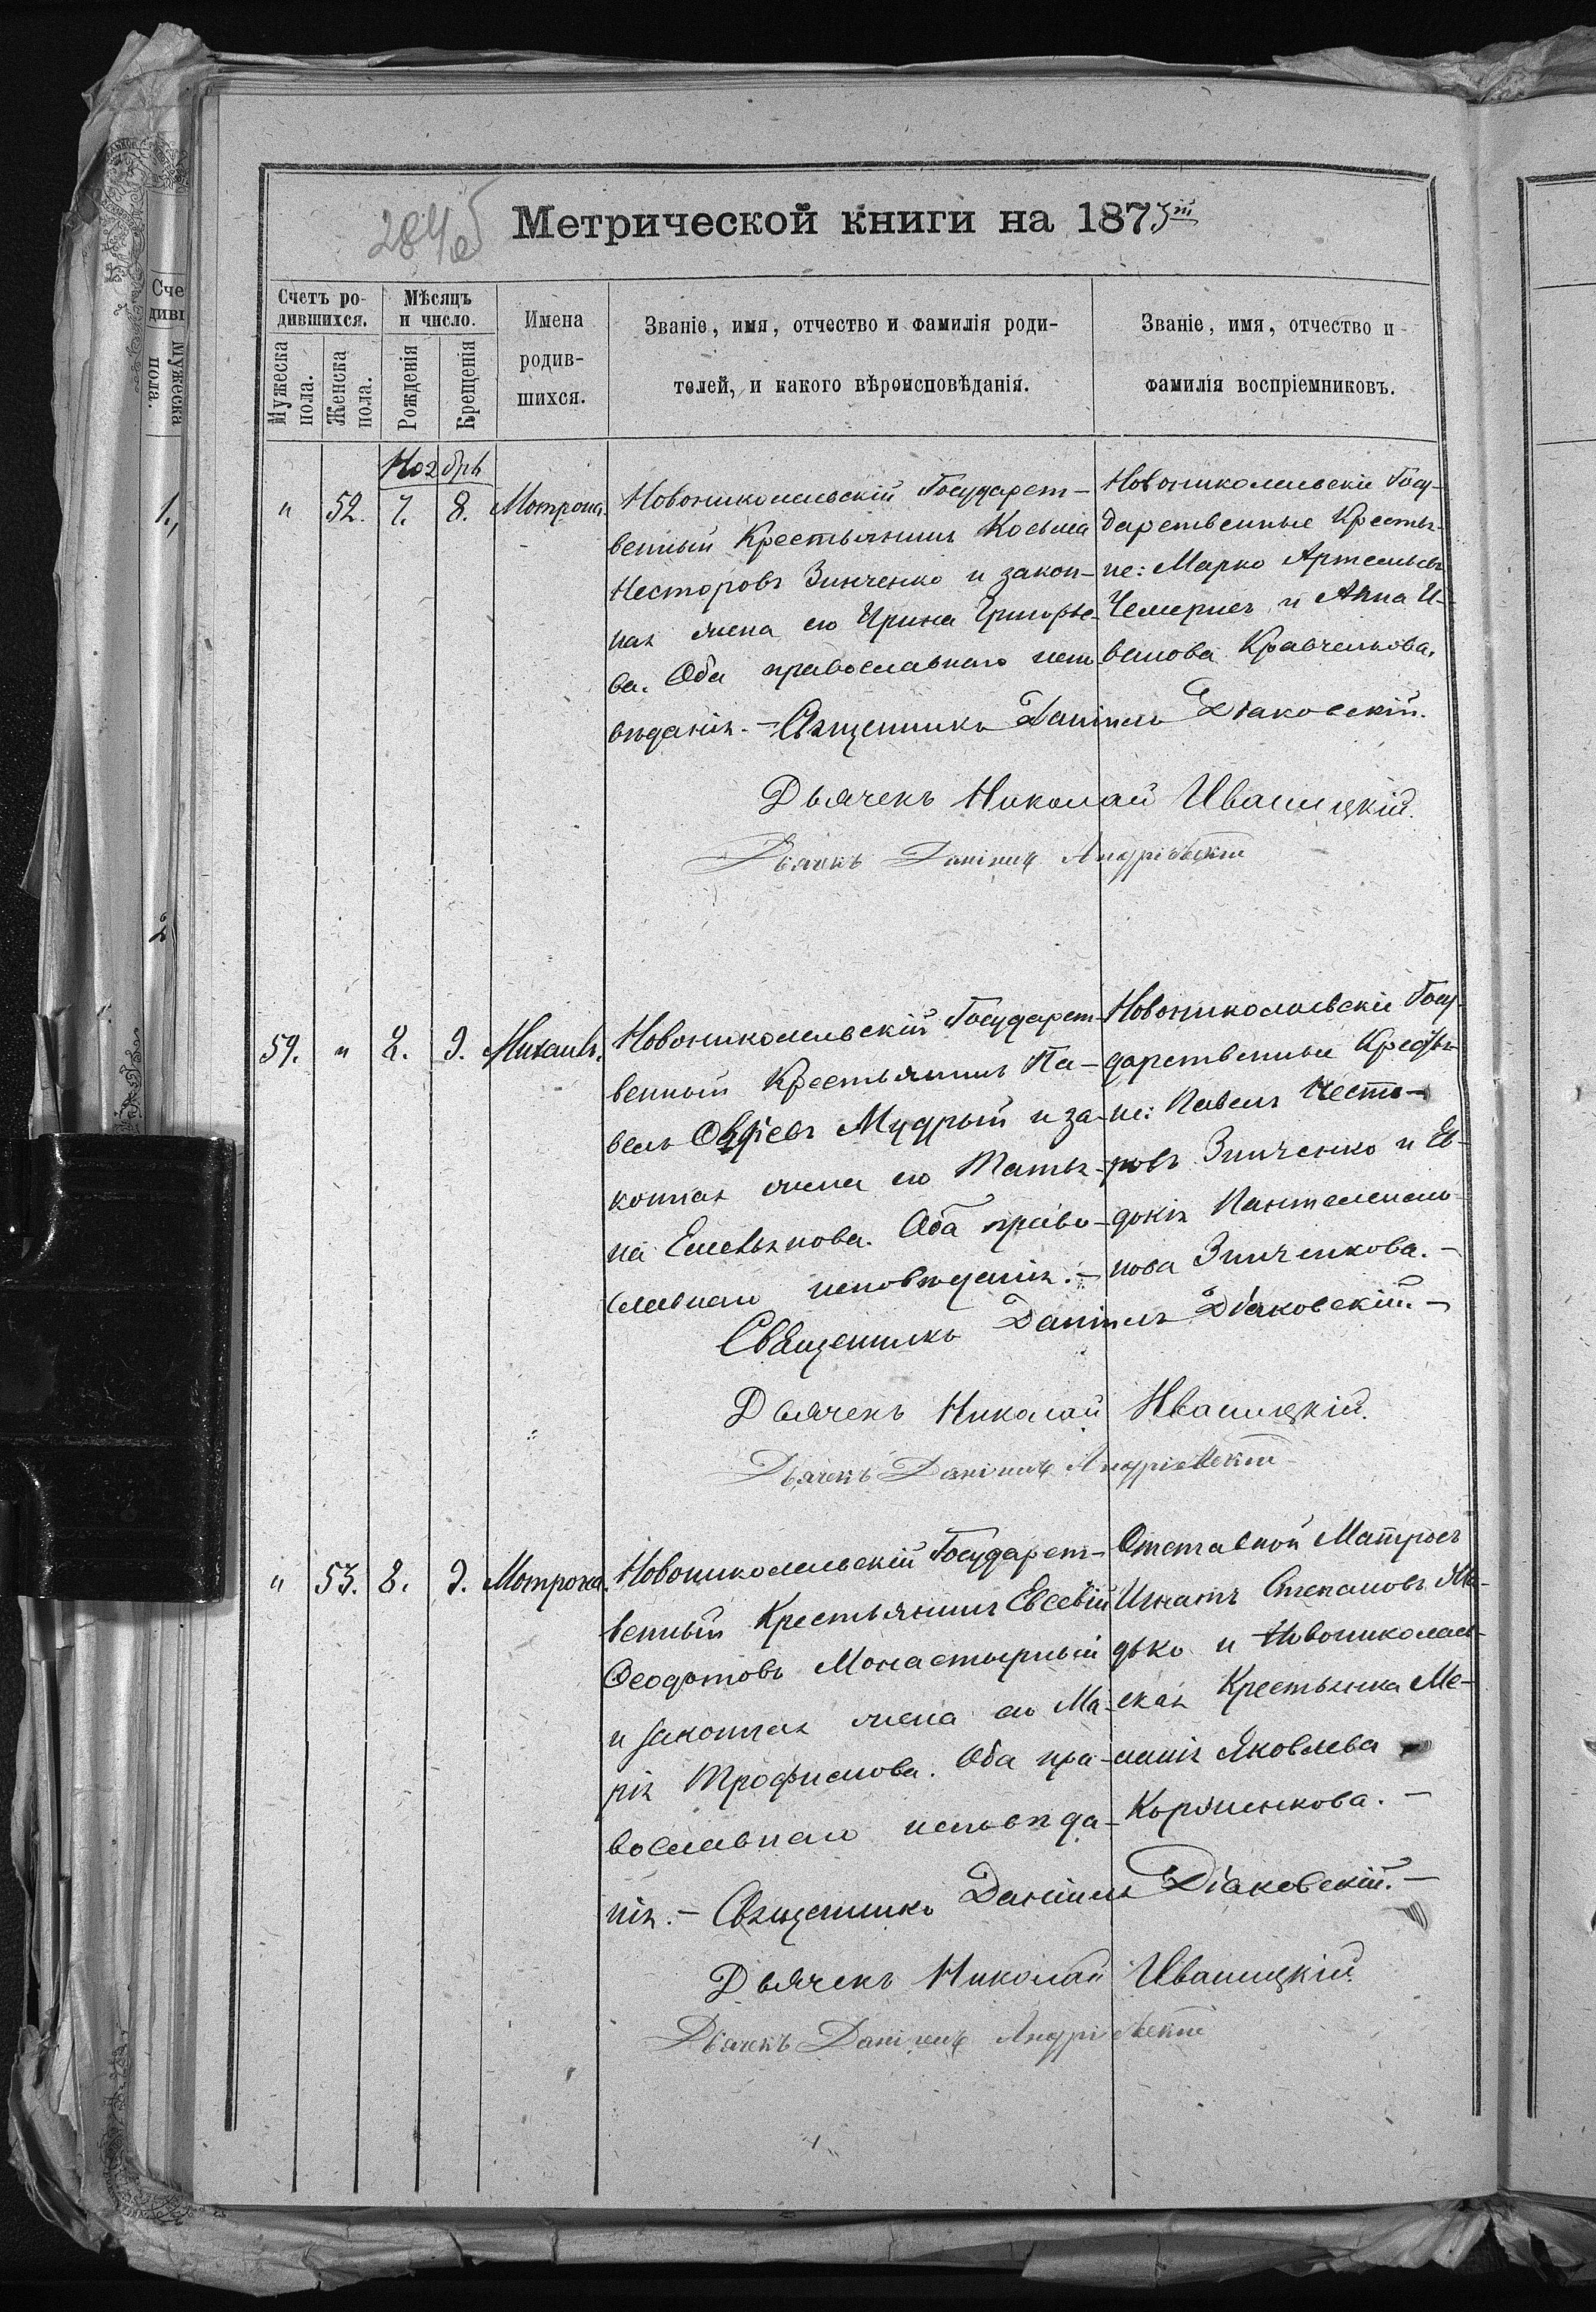 2845
Метрической книги на 1873й
Счетъ ро-
дившихся.
Мужеска
пола.
Женска
пола.
Мѣсяцъ
и число.
Рожденія
Крещенія
Имена
родив-
шихся.
Званіе, имя, отчество и фамилія роди-
телей, и какого вѣроисповѣданія.
Званіе, имя, отчество и
фамилія воспріемниковъ.
Ноябрь
" 52. 7. 8. Мотрона.
Новониколаевскій Государст-
венный Крестьянинъ Косьма
Несторовъ Зинченко и закон-
ная жена его Ирина Григорье-
ва. Оба православнаго испо
вѣданія. –
Новониколаевскіе Госу-
дарственные Крестья-
не: Марко Артемьевъ
Чемерисъ и Анна И-
ванова Кравченкова.
Священникъ Даніилъ Діаковскій.
Дьячекъ Николай Ивашицкій.
Дьячекъ Даніилъ Андріевскій
59. " 8. 9. Михаилъ.
Новониколаевскій Государст-
венный Крестьянинъ Па-
велъ Овдіевъ Мудрый и за-
конная жена его Татья-
на Емельянова. Оба право-
славнаго исповѣданія. –
Новониколаевскіе Госу-
дарственные Крестья-
не: Павелъ Несто-
ровъ Зинченко и Ев-
докія Пантелеимо-
нова Зинченкова. –
Священникъ Даніилъ Діаковскій. –
Дьячекъ Николай Ивашицкій.
Дьячекъ Даніилъ Андріевскій
" 53. 8. 9. Мотрона.
Новониколаевскій Государст-
венный Крестьянинъ Евсевій
Ѳеодотовъ Монастырный
и законная жена его Ма-
рія Трофимова. Оба пра-
вославнаго исповѣда-
нія. –
Отставной Матросъ
Игнатъ Степановъ
дько и Новониколаев-
ская Крестьянка Ме-
ланія Яковлева
Корніенкова. –
Священникъ Даніилъ Діаковскій. –
Дьячекъ Николай Ивашицкій.
Дьячекъ Даніилъ Андріевскій